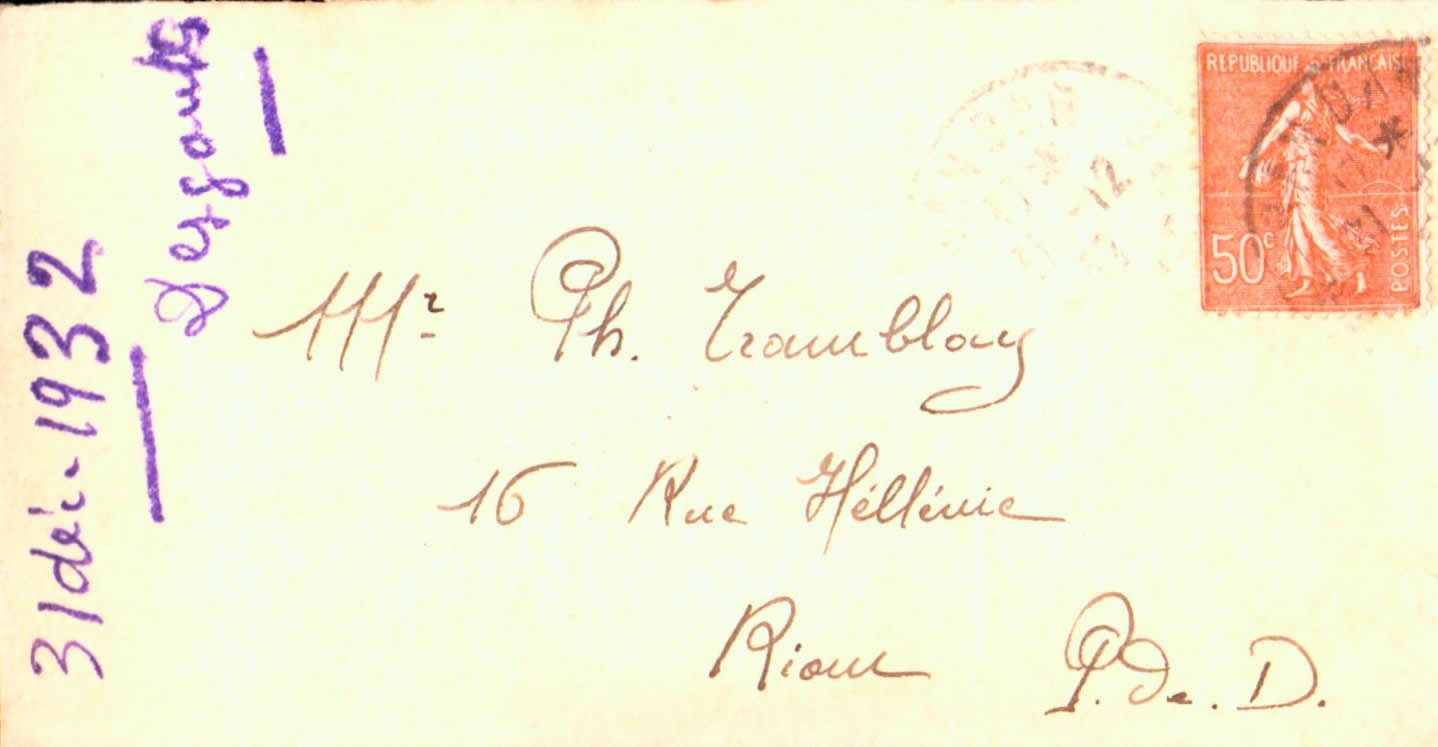 REPUBLIQUE FRANCAISE
50c
POSTES
12
Mr Ph. Tramblay
16 Rue Héllénie
Riom P. de. D.
31 déc-1932